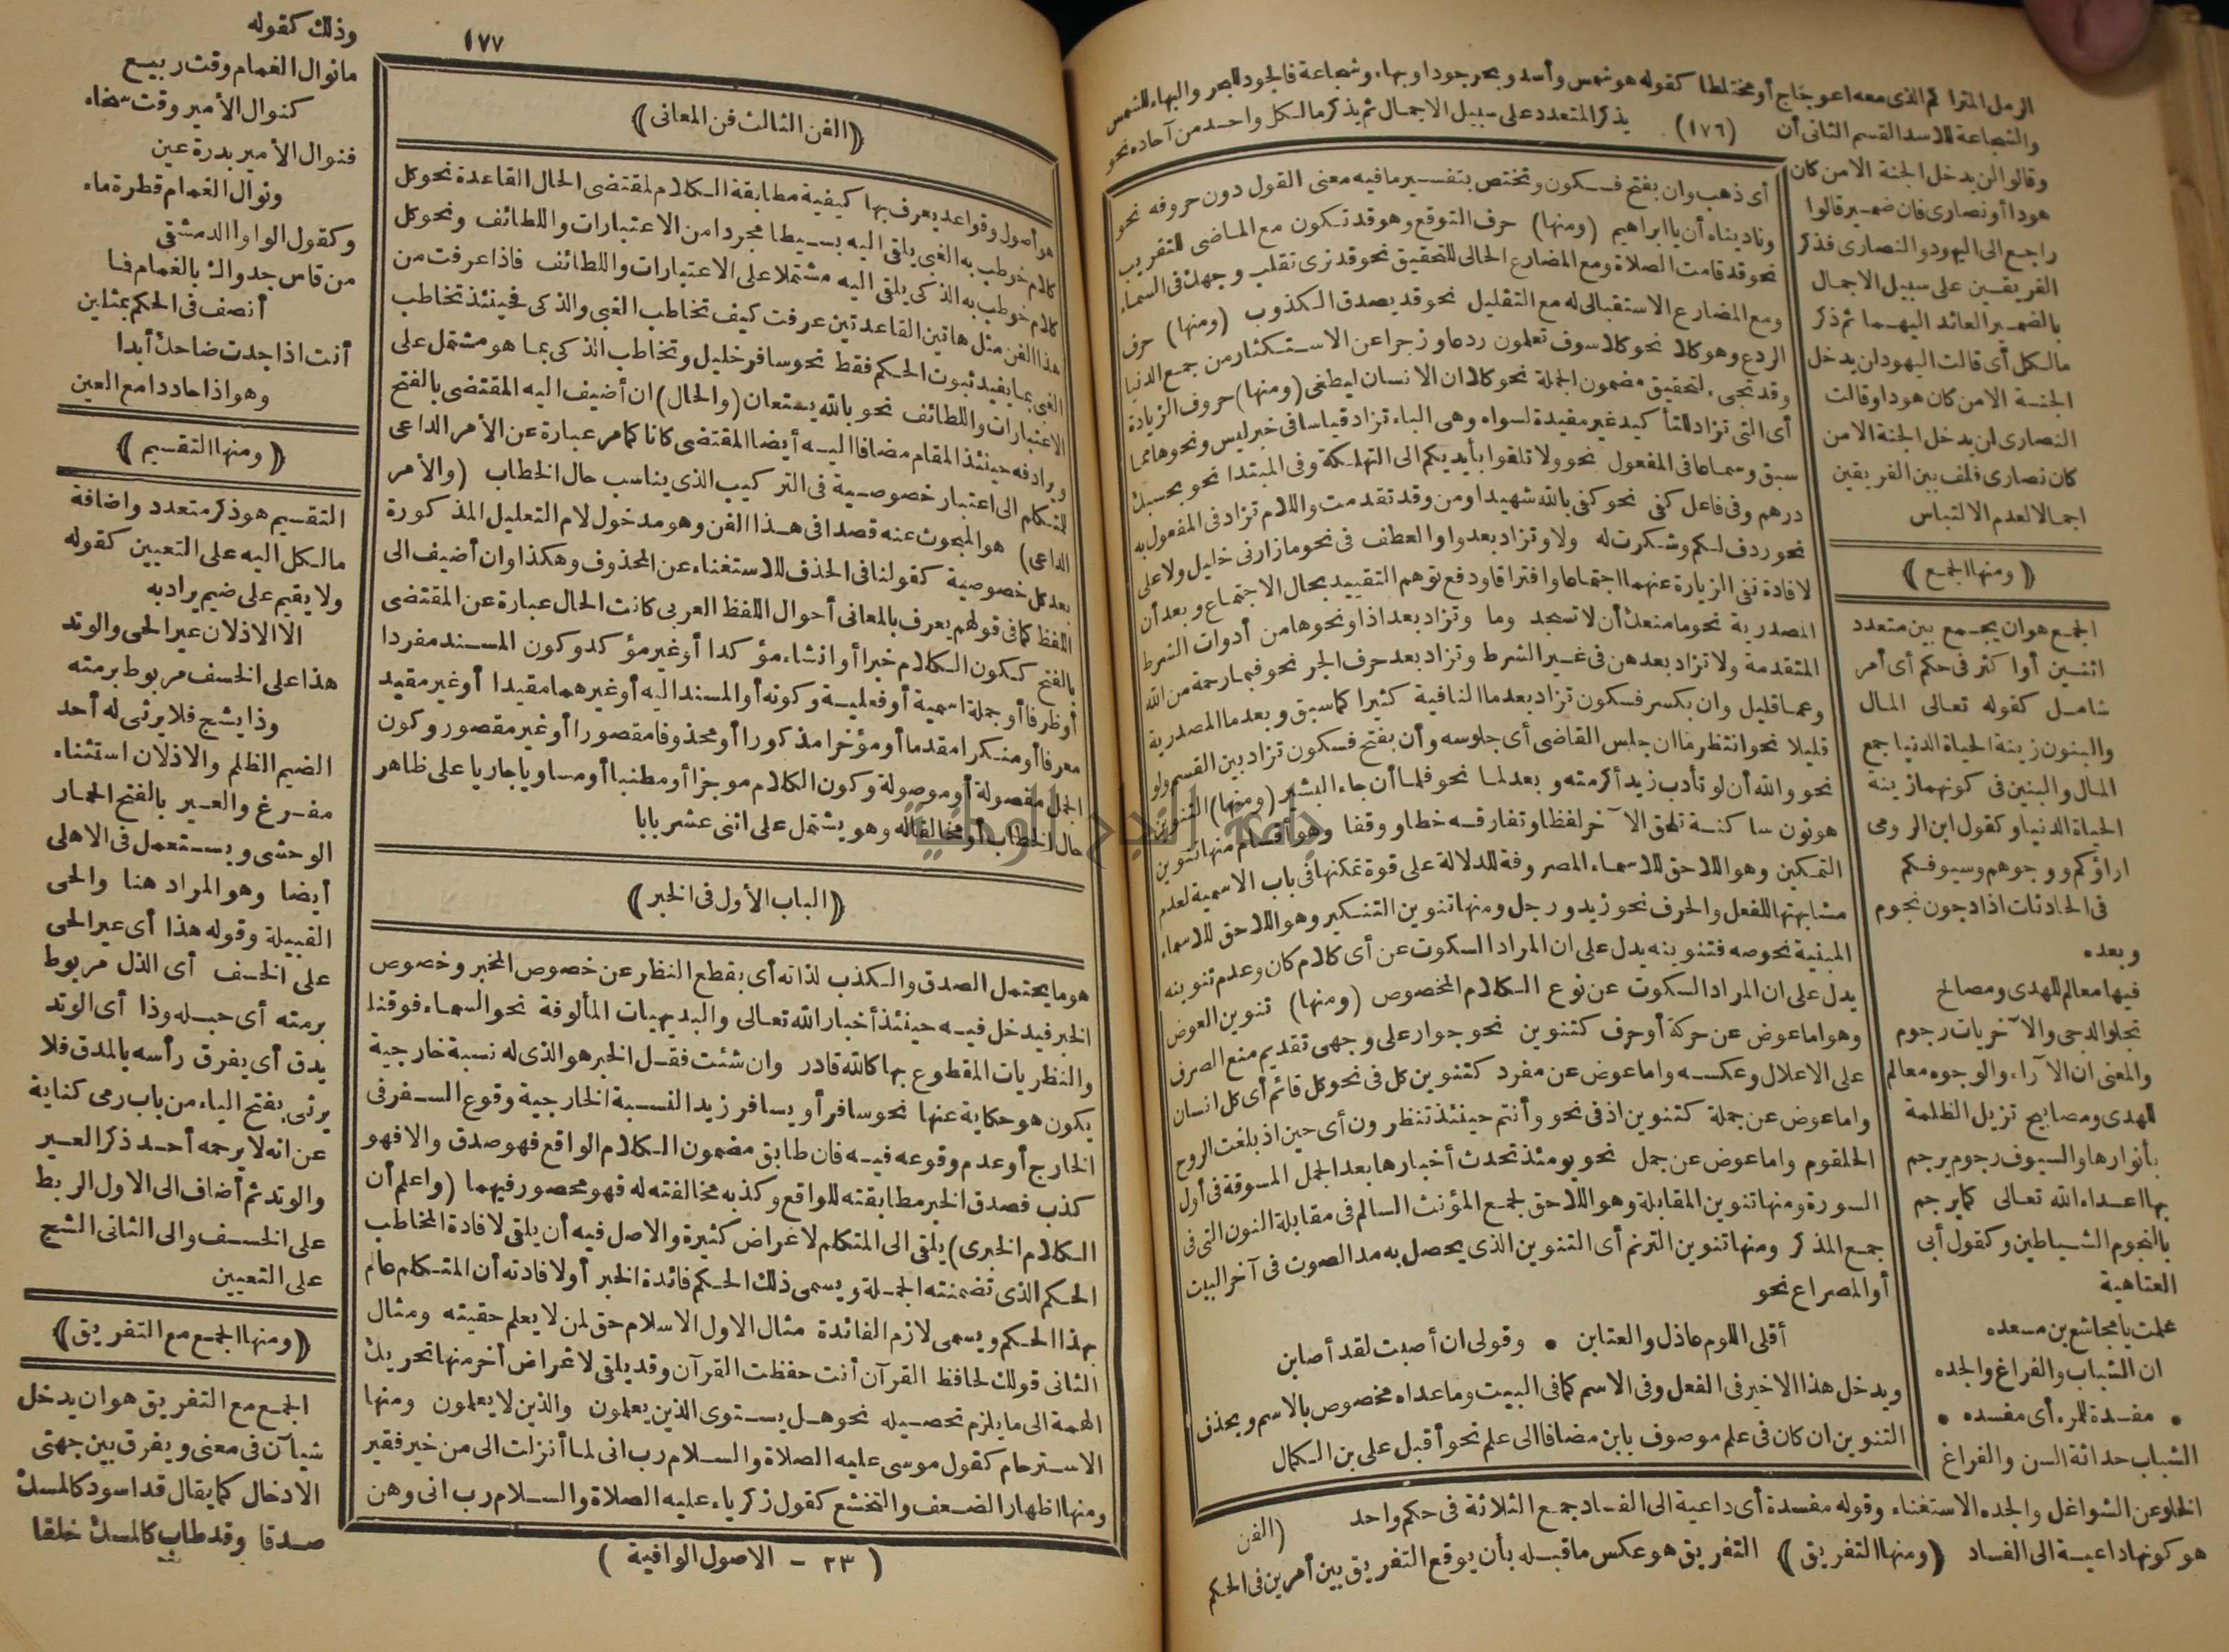 الرمل المتراكم الذى معه اعوجاج أو مختلطا كقوله هو شمس وأسد وبحر جودا وبهاء وشجاعة فالجود للبحر والبهاء للشمس
والشجاعة للاسد القسم الثانى أن (١٧٦) يذكر المتعدد على سبيل الاجمال ثم يذكر ما لكل واحد من آحاده نحو
وقالوا لن يدخل الجنة الا من كان
هودا أو نصارى فان ضمير قالوا
راجع الى اليهود والنصارى فذكر
الفريقين على سبيل الاجمال
بالضمير العائد اليهما ثم ذكر
ما لكل أى قالت اليهود لن يدخل
الجنة الا من كان هودا وقالت
النصارى لن يدخل الجنة الا من
كان نصارى فلف بين الفريقين
اجمالا لعدم الالتباس
﴿ ومنها الجمع ﴾
الجمع هو ان يجمع بين متعدد
اثنين أو اكثر فى حكم أى أمر
شامل كقوله تعالى المال
والبنون زينة الحياة الدنيا جمع
المال والبنين فى كونهما زينة
الحياة الدنيا وكقول ابن الرومى
اراؤكم ووجوهكم وسيوفكم
فى الحادثات اذا دجون نجوم
وبعده
فيها معالم للهدى ومصالح
تجلو الدجى والآخريات رجوم
والمعنى ان الآراء والوجوه معالم
للهدى ومصابيح تزيل الظلمة
بأنوارها والسيوف رجوم يرجم
بها اعداء الله تعالى كما يرجم
بالنجوم الشياطين وكقول أبى
العتاهية
علمت يا مجاشع بن مسعده
ان الشباب والفراغ والجده
• مفسدة للمرء أى مفسده •
الشباب حداثة السن والفراغ
الخلو عن الشواغل والجده الاستغناء وقوله مفسدة أى داعية الى الفساد جمع الثلاثة فى حكم واحد
هو كونها داعية الى الفساد ﴿ ومنها التفريق ﴾ التفريق هو عكس ما قبله بأن يوقع التفريق بين أمرين فى الحكم
أى ذهب وان بفتح فسكون وتختص بتفسير ما فيه معنى القول دون حروفه نحو
وناديناه أن يا ابراهيم (ومنها) حرف التوقع وهو قد تكون مع الماضى للتقريب
نحو قد قامت الصلاة ومع المضارع الحالى للتحقيق نحو قد نرى تقلب وجهك فى السماء
ومع المضارع الاستقبالى له مع التقليل نحو قد يصدق الكذوب (ومنها) حرف
الردع وهو كلا نحو كلا سوف تعلمون ردعا وزجرا عن الاستكثار من جمع الدنيا
وقد تجىء لتحقيق مضمون الجملة نحو كلا ان الانسان ليطغى (ومنها) حروف الزيادة
أى التى تزاد للتأكيد غير مفيدة لسواه وهى الباء تزاد قياسا فى خبر ليس ونحوها مما
سبق وسماعا فى المفعول نحو ولا تلقوا بأيديكم الى التهلكة وفى المبتدا نحو بحسبك
درهم وفى فاعل كفى نحو كفى بالله شهيدا ومن وقد تقدمت واللام تزاد فى المفعول به
نحو ردف لكم وشكرت له ولا وتزاد بعد واو العطف فى نحو ما زارنى خليل ولا على
لافادة نفى الزيارة عنهما اجتماعا وافتراقا ودفع توهم التقييد بحال الاجتماع وبعد أن
المصدرية نحو ما منعك أن لا تسجد وما وتزاد بعد اذا ونحوها من أدوات الشرط
المتقدمة ولا تزاد بعدهن فى غير الشرط وتزاد بعد حرف الجر نحو فبما رحمة من الله
وعما قليل وان بكسر فسكون تزاد بعد ما النافية كثيرا كما سبق وبعد ما المصدرية
قليلا نحو انتظر ما ان جلس القاضى أى جلوسه وأن بفتح فسكون تزاد بين القسم ولو
نحو والله أن لو تأدب زيد أكرمته وبعد لما نحو فلما أن جاء البشير (ومنها) التنوين
هو نون ساكنة تلحق الآخر لفظا وتفارقه خطا ووقفا وهو أقسام منها تنوين
التمكين وهو اللاحق للاسماء المصروفة للدلالة على قوة تمكنها فى باب الاسمية لعدم
مشابهتها للفعل والحرف نحو زيد ورجل ومنها تنوين التنكير وهو اللاحق للاسماء
المبنية نحو صه فتنوينه يدل على ان المراد السكوت عن أى كلام كان وعدم تنوينه
يدل على ان المراد السكوت عن نوع الكلام المخصوص (ومنها) تنوين العوض
وهو اما عوض عن حركة أو حرف كتنوين نحو جوار على وجهى تقديم منع الصرف
على الاعلال وعكسه واما عوض عن مفرد كتنوين كل فى نحو كل قائم أى كل انسان
واما عوض عن جملة كتنوين اذ فى نحو وأنتم حينئذ تنظرون أى حين اذ بلغت الروح
الحلقوم واما عوض عن جمل نحو يومئذ تحدث أخبارها بعد الجمل المسوقة فى أول
السورة ومنها تنوين المقابلة وهو اللاحق لجمع المؤنث السالم فى مقابلة النون التى فى
جمع المذكر ومنها تنوين الترنم أى التنوين الذى يحصل به مد الصوت فى آخر البيت
أو المصراع نحو
أقلى اللوم عاذل والعتابن • وقولى ان أصبت لقد أصابن
ويدخل هذا الاخير فى الفعل وفى الاسم كما فى البيت وما عداه مخصوص بالاسم ويحذف
التنوين ان كان فى علم موصوف بابن مضافا الى علم نحو أقبل على بن الكمال
(الفن
١٧٧
﴿ الفن الثالث فن المعانى ﴾
هو أصول وقواعد يعرف بها كيفية مطابقة الكلام لمقتضى الحال القاعدة نحو كل
كلام خوطب به الغبى يلقى اليه بسيطا مجردا من الاعتبارات واللطائف ونحو كل
كلام خوطب به الذكى يلقى اليه مشتملا على الاعتبارات واللطائف فاذا عرفت من
هذا الفن مثل هاتين القاعدتين عرفت كيف تخاطب الغبى والذكى فحينئذ تخاطب
الغبى بما يفيد ثبوت الحكم فقط نحو سافر خليل وتخاطب الذكى بما هو مشتمل على
الاعتبارات واللطائف نحو بالله يستعان (والحال) ان أضيف اليه المقتضى بالفتح
ويرادفه حينئذ المقام مضافا اليه أيضا المقتضى كانا كما مر عبارة عن الأمر الداعى
للمتكلم الى اعتبار خصوصية فى التركيب الذى يناسب حال الخطاب (والأمر
الداعى) هو المبحوث عنه قصدا فى هذا الفن وهو مدخول لام التعليل المذكورة
بعد كل خصوصية كقولنا فى الحذف للاستغناء عن المحذوف وهكذا وان أضيف الى
اللفظ كما فى قولهم يعرف بالمعانى أحوال اللفظ العربى كانت الحال عبارة عن المقتضى
بالفتح ككون الكلام خبرا أو انشاء مؤكدا أو غير مؤكد وكون المسند مفردا
أو ظرفا أو جملة اسمية أو فعلية وكونه أو المسند اليه أو غيرهما مقيدا أو غير مقيد
معرفا أو منكرا مقدما أو مؤخرا مذكورا أو محذوفا مقصورا أو غير مقصور وكون
الجمل مفصولة أو موصولة وكون الكلام موجزا أو مطنبا أو مساويا جاريا على ظاهر
حال الخطاب أو مخالفا له وهو يشتمل على اثنى عشر بابا
﴿ الباب الأول فى الخبر ﴾
هو ما يحتمل الصدق والكذب لذاته أى بقطع النظر عن خصوص المخبر وخصوص
الخبر فيدخل فيه حينئذ أخبار الله تعالى والبديهيات المألوفة نحو السماء فوقنا
والنظريات المقطوع بها كالله قادر وان شئت فقل الخبر هو الذى له نسبة خارجية
يكون هو حكاية عنها نحو سافر أو يسافر زيد النسبة الخارجية وقوع السفر فى
الخارج أو عدم وقوعه فيه فان طابق مضمون الكلام الواقع فهو صدق والا فهو
كذب فصدق الخبر مطابقته للواقع وكذبه مخالفته له فهو محصور فيهما (واعلم أن
الكلام الخبرى) يلقى الى المتكلم لاغراض كثيرة والاصل فيه أن يلقى لافادة المخاطب
الحكم الذى تضمنته الجملة ويسمى ذلك الحكم فائدة الخبر أو لافادته أن المتكلم عالم
بهذا الحكم ويسمى لازم الفائدة مثال الاول الاسلام حق لمن لا يعلم حقيته ومثال
الثانى قولك لحافظ القرآن أنت حفظت القرآن وقد يلقى لاغراض أخر منها تحريك
الهمة الى ما يلزم تحصيله نحو هل يستوى الذين يعلمون والذين لا يعلمون ومنها
الاسترحام كقول موسى عليه الصلاة والسلام رب انى لما أنزلت الى من خير فقير
ومنها اظهار الضعف والتخشع كقول زكرياء عليه الصلاة والسلام رب انى وهن
( ٢٣ - الاصول الوافية )
وذلك كقوله
ما نوال الغمام وقت ربيع
كنوال الأمير وقت سخاء
فنوال الأمير بدرة عين
ونوال الغمام قطرة ماء
وكقول الواوا الدمشقى
من قاس جدواك بالغمام فما
أنصف فى الحكم بمثلين
أنت اذا جدت ضاحك أبدا
وهو اذا جاد دامع العين
﴿ ومنها التقسيم ﴾
التقسيم هو ذكر متعدد واضافة
ما لكل اليه على التعيين كقوله
ولا يقيم على ضيم يراد به
الا الاذلان عير الحى والوتد
هذا على الخسف مربوط برمته
وذا يشج فلا يرثى له أحد
الضيم الظلم والاذلان استثناء
مفرغ والعير بالفتح الحمار
الوحشى ويستعمل فى الاهلى
أيضا وهو المراد هنا والحى
القبيلة وقوله هذا أى عير الحى
على الخسف أى الذل مربوط
برمته أى حبله وذا أى الوتد
يدق أى يفرق رأسه بالمدق فلا
يرثى بفتح الياء من باب رمى كناية
عن انه لا يرحمه أحد ذكر العير
والوتد ثم أضاف الى الاول الربط
على الخسف والى الثانى الشج
على التعيين
﴿ ومنها الجمع مع التفريق ﴾
الجمع مع التفريق هو ان يدخل
شيآن فى معنى ويفرق بين جهتى
الادخال كما يقال قد اسود كالمسك
صدقا وقد طاب كالمسك خلقا
جامعة النجاح الوطنية